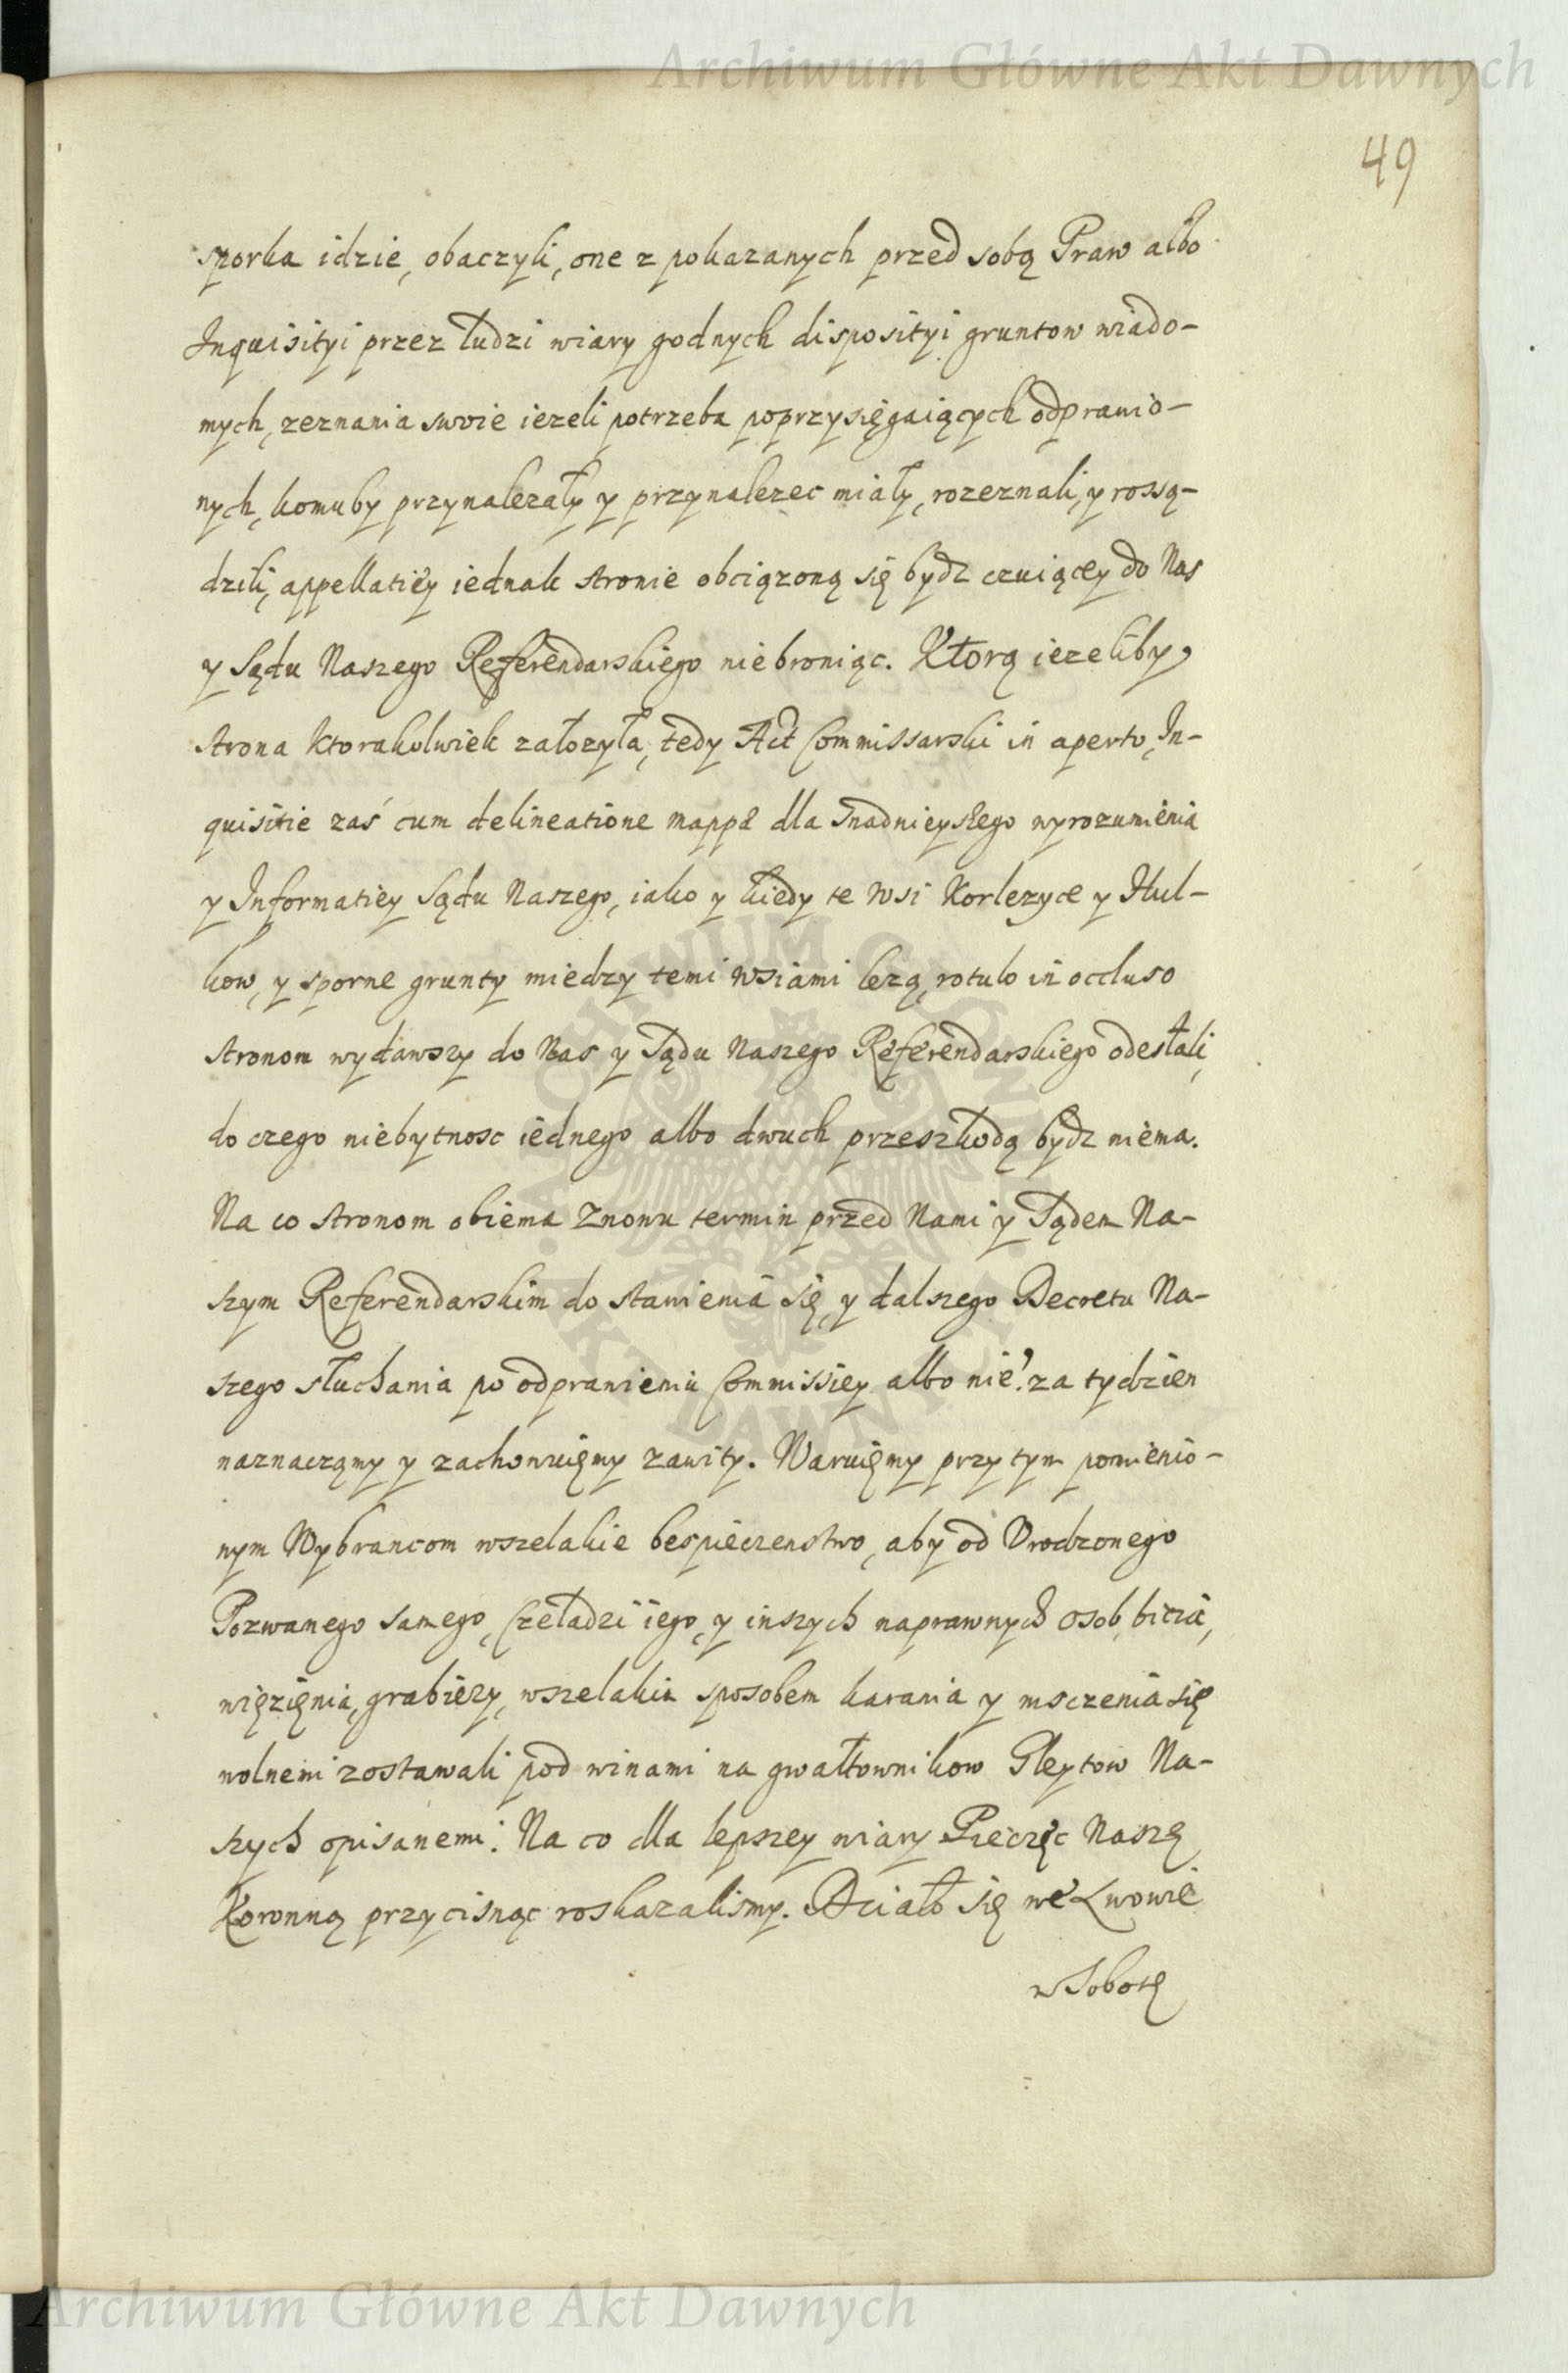 Archiwum Główne Akt Dawnych
49
sporka idzie, obaczyli, one z pokazanych przed sobą Praw albo
Inquisityi przez ludzi wiary godnych disposityi gruntow wiado-
mych, zeznania swoie iezeli potrzeba poprzysięgaiących odprawio-
nych, komuby przynalezały y przynalezec miały, rozeznali, y rossą-
dzili, appellatiey iednak stronie obciązoną się bydz czuiącey do Nas
y Sądu Naszego Referendarskiego niebroniąc. Ktorą iezeliby,
strona ktorakolwiek załozyła, tedy Act Commissarski in aperto, In-
quisitie zaś cum delineatione mappæ dla snadnieyszego wyrozumienia
y Informatiey Sądu Naszego, iako y kiedy te Wsi Korlezyce y Hul-
kow, y sporne grunty miedzy temi Wsiami lezą, rotulo in occluso
stronom wydawszy do Nas y Sądu Naszego Referendarskiego odesłali,
do czego niebytnosc iednego albo dwuch przeszkodą bydz niema.
Na co stronom obiema Znowu termin przed Nami y Sądem Na-
szym Referendarskim do stawienia się, y dalszego Decretu Na-
szego słuchania po odprawieniu Commissiey albo nie? za tydzien
naznaczamy y zachowuięmy zawity. Waruięmy przy tym pomienio-
nym Wybrancom wszelakie bespieczenstwo, aby od Vrodzonego
Pozwanego samego, Czeladzi iego, y inszych naprawnych osob, bicia,
więzięnia, grabiezy, wszelakim sposobem karania y msczenia się
wolnemi zostawali pod winami na gwałtownikow Gleytow Na-
szych opisanemi. Na co dla lepszey wiary Pieczęc Naszę
Koronną przycisnąc roskazalismy. Działo się we Lwowie
w Sobotę
ARCHIWUM GŁÓWNE AKT DAWNYCH
Archiwum Główne Akt Dawnych